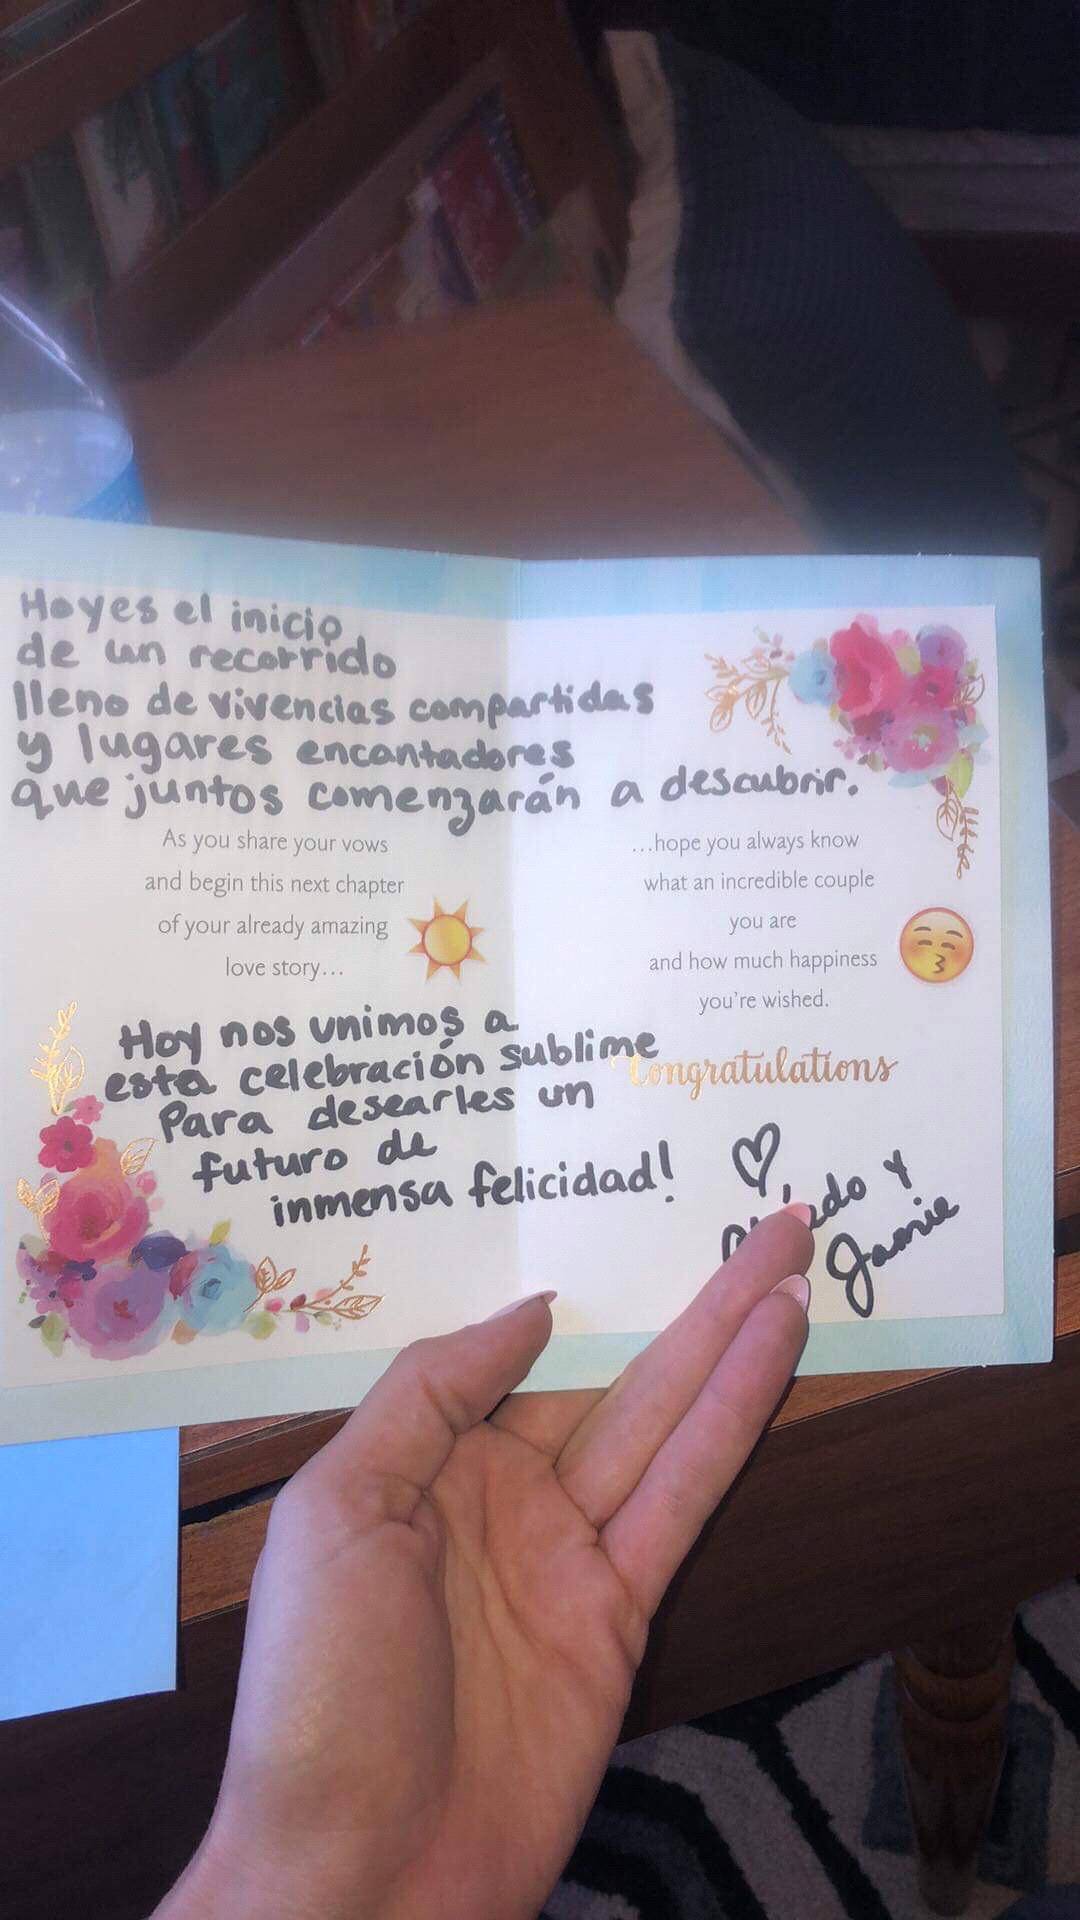 Hoy es el inicio
de un recorrido
lleno de vivencias compartidas
y lugares encantadores
que juntos comenzarán a descubrir.
As you share your vows
and begin this next chapter
of your already amazing
love story...
Hoy nos unimos a
esta celebración sublime
Para desearles un
futuro de
inmensa felicidad!
...hope you always know
what an incredible couple
you are
and how much happiness
you're wished.
Congratulations
y
Jamie